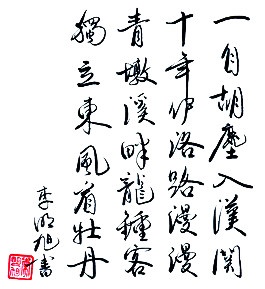 一自胡塵入漢關
十年伊洛路漫漫
青墩溪畔龍鍾客
獨立東風看牡丹
李明旭書